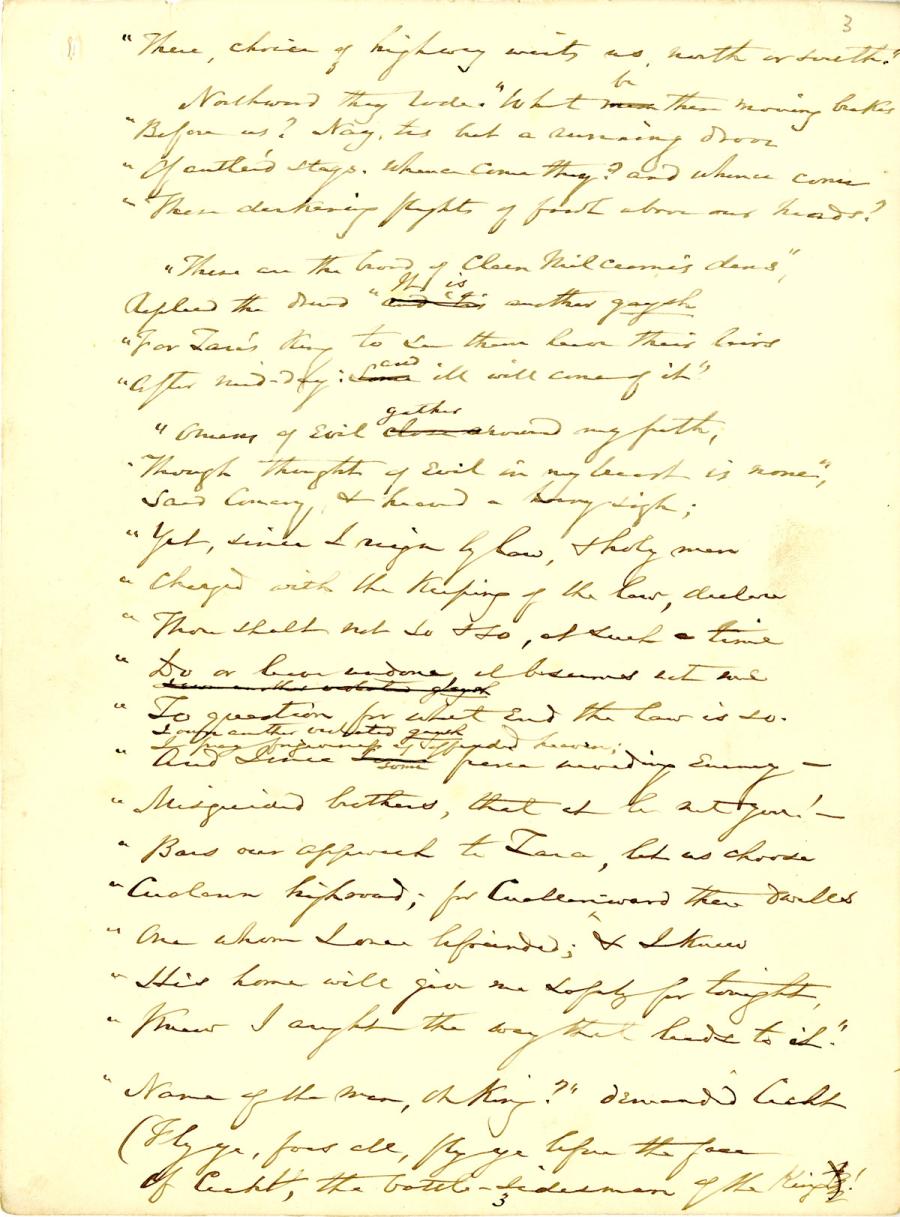 3
"There, choice of highway waits us, north or south."
Northward they rode. "What be ~~mean~~ these moving brakes
"Before us? Nay, tis but a running drove
"Of antler'd stags. Whence come they? and whence come
"These darkening flights of fowl above our heads?
"These are the brood of Cleen Milcarna's dens",
Replied the Druid "It is ~~and 'tis~~ another gaysh
"For Tara's King to see them leave their lairs
"After mid-day: and ~~Some~~ ill will come of it"
"Omens of Evil gather ~~close a~~round my path,
"Though thought of Evil in my heart is none",
Said Conary, & heaved a heavy sigh;
"Yet, since I reign by law, & holy men
"Charged with the Keeping of the law, declare
"Thou shalt not so & so, at such a time
"Do or leave undone, it beseems not me
~~another violated gaysh~~
"To question for what End the law is so.
another violated gaysh
forgiveness of offended heaven;
"And Since some fierce marauding Enemy —
"Misguided brothers, that it be not you! —
"Bars our approach to Tara, let us choose
"Cualann highroad; for Cuallan-ward there dwells
"One whom I once befriended; & I know
"His home will give me safety for tonight,
"Knew I aught the way that leads to it."
"Name of the man, oh King?" demanded Cecht
(Fly ye, foes all, fly ye before the face
Of Cecht, the battle-sidesman of the King!
3